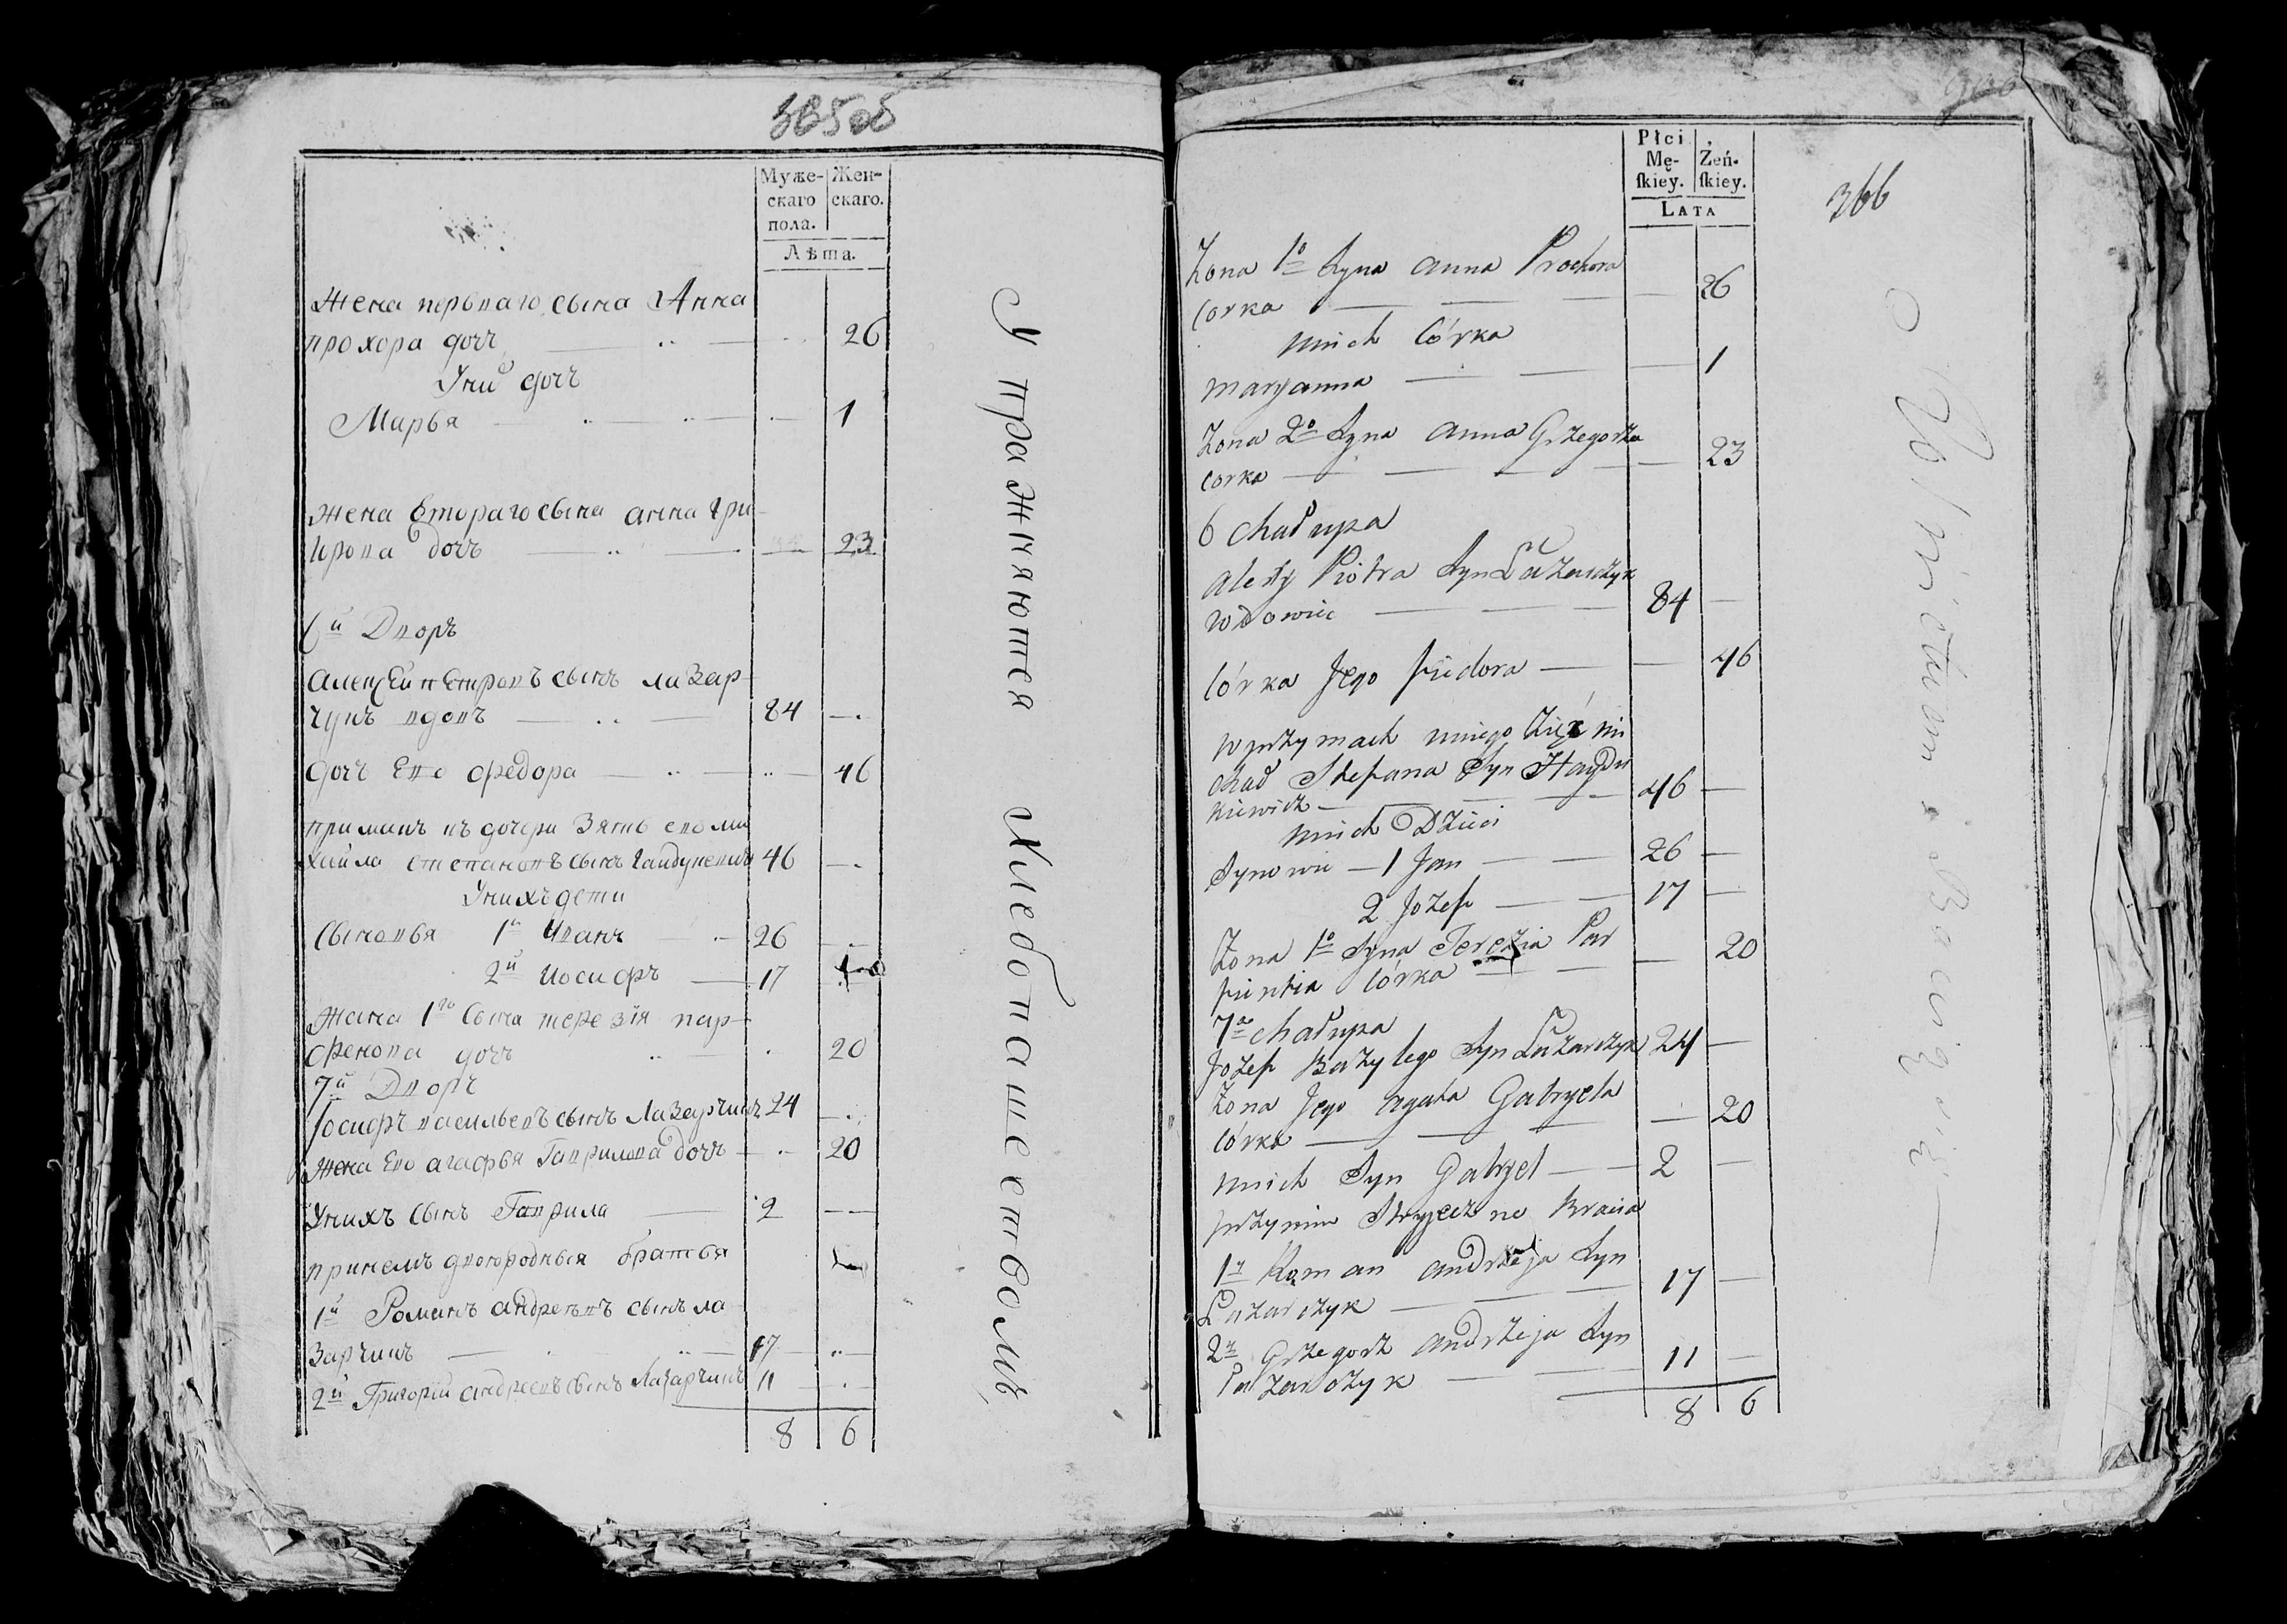 365об
Муже-
скаго
пола.
Жен-
скаго.
Лѣта.
жена перваго сына Анна
прохора дочь 26
Уни дочь
Марья 1
жена втораго сына анна гри
Црова дочь 23
6й Дворъ
Алексѣй петровъ сынъ лазар
чукъ вдовъ 84
дочь Ево федора 46
примакъ къ дочери зять ево ми
хайла степановъ сынъ гайдукевичъ 46
Унихъ дети
Сыновья 1й Иванъ 26
2й иосифъ 17
жана 1го сына терезiя пар
фенова дочь 20
7й Дворъ
Iосифъ васильевъ сынъ Лазарчикъ 24
жена Ево агафья Гаврилова дочь 20
Унихъ сынъ Гаврила 2
принемъ двоюродныя братья
1й Романъ андреевъ сынъ ла
зарчикъ 17
2й Григорiй андреевъ сынъ Лазарчикъ 11
8 6
Упражняются Хлебопашествомъ
Płci
Mę-
ſkiey.
Żeń-
ſkiey.
LATA
366
Zona 1o Syna anna Prochora
Corka 26
unich Córka
maryanna 1
Zona 2o Syna anna Grzegorza
corka 23
6 chałupa
alexy Piotra Syn Łazarczyk
wdowiec 84
Córka Jego fiedora 46
w przymach uniego Zięć mi
chał Stefana Syn Haydu
kiewicz 46
unich Dzieci
Synowie 1 Jan 26
2 Jozef 17
Zona 1o Syna Terezia Par
fientia Córka 20
7a chałupa
Jozef Bazylego Syn Łazarczyk 24
Zona Jego agata Gabryela
Córka 20
unich Syn Gabryel 2
przynim Stryjeczne Bracia
1y Roman andrzeja Syn
Łazarczyk 17
2y Grzegorz andrzeja Syn
Łazarczyk 11
8 6